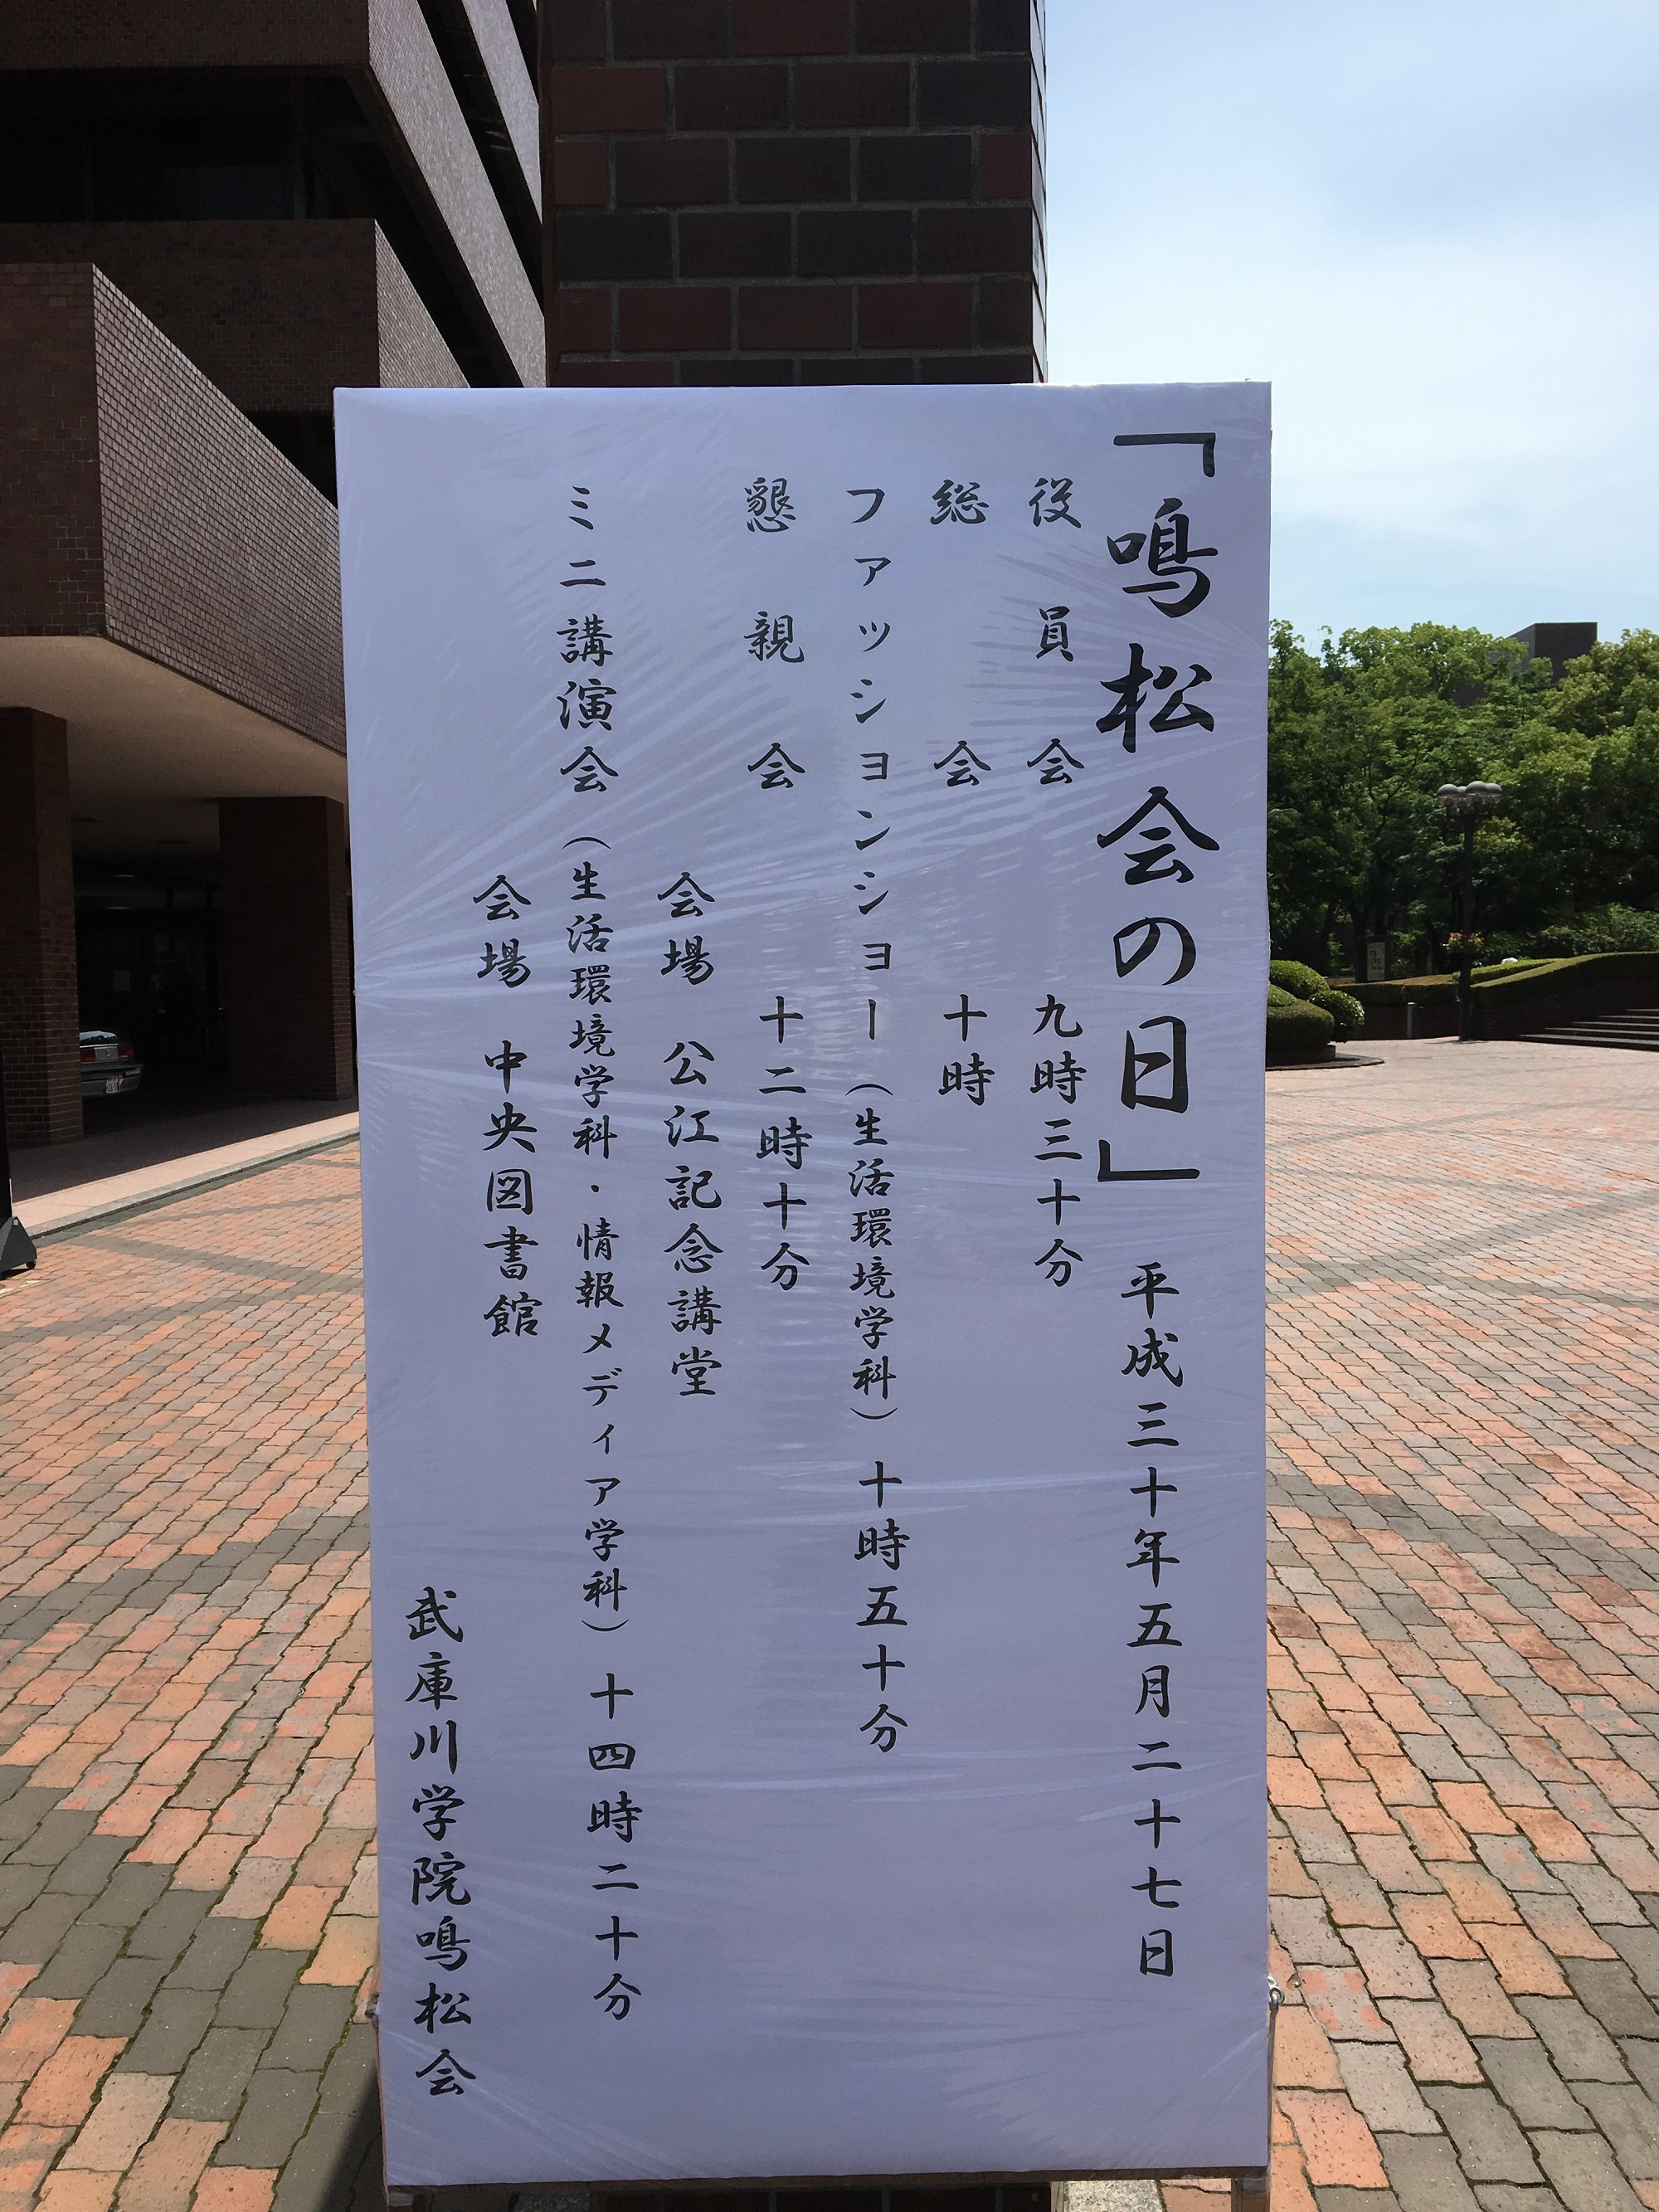 「鳴松会の日」 平成三十年五月二十七日
役員会 九時三十分
総会 十時
ファッションショー（生活環境学科） 十時五十分
懇親会 十二時十分
会場 公江記念講堂
ミニ講演会（生活環境学科・情報メディア学科） 十四時二十分
会場 中央図書館
武庫川学院鳴松会